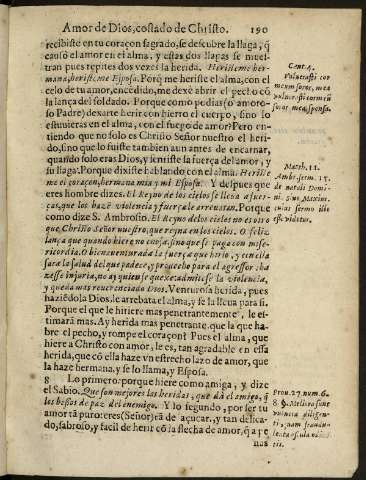 Amor de Dios, costado de Christo. 190
recibiste en tu coraçon sagrado, se descubre la llaga, q̃
causó el amor en el alma, y estas dos llagas se mues-
tran pues repites dos vezes la herida. Heristeme her-
mana, heristeme Esposa. Porq̃ me heriste el alma, con el
celo de tu amor, encẽdido, me dexè abrir el pecho cõ
la lança del soldado. Porque como podias (ô amoro-
so Padre) dexarte herir con hierro el cuerpo, sino lo
estuvieras en el alma, con el fuego de amor? Pero en-
tiendo que no solo es Christo Señor nuestro el heri-
do, sino que lo fuiste tambien aun antes de encarnar,
quando solo eras Dios, y sentiste la fuerça del amor, y
su llaga. Porque dixiste hablando con el alma. Heriste
me el coraçon, hermana mia y mi Esposa. Y despues que
eres hombre dizes. El Reyno de los cielos se lleva a fuer-
ças, que los hazẽ violencia y fuerça le arrebatan. Porque
como dize S. Ambrosio. El Reyno de los cielos no es otro
que Christo Señor nuestro, que reyna en los cielos. O feliz
lança que quando hiere no enoja, sino que se paga con mise-
ricordia. O bienaventurada la fuerça que hirio, y cen ella
sara la salud del que padece, y provecho para el agressor: ha
nesse injuria, no ay quien se quexe: admitese la violencia,
y queda mas reverenciado Dios. Venturosa herida, pues
haziẽdola a Dios, le arrebata el alma, y se la lleva para si.
Porque el que le hiriere mas penetrantemente, le es-
timará mas. Ay herida mas penetrante que la que ha-
bre el pecho, y rompe el coraçon? Pues el alma, que
hiere a Christo con amor, le es, tan agradable en essa
herida, que cõ ella haze vn estrecho lazo de amor, que
la haze hermana, y se lo llama, y Esposa.
8 Lo primero: porque hiere como amiga, y dize
el Sabio. Que son mejores las heridas, que dà el amigo, q̃
los besos de paz del enemigo. Y lo segundo, por ser tu
amor tã puro: eres (Señor) tã de açucar, y tan delica-
do, sabroso, y facil de herir cõ la flecha de amor, q̃ a pe
nas
Cant. 4.
Vulnerasti cor
meum soror, mea
vulnerasti cor meũ
soror mea sponsa.
Math. 11.
Ambr. serm. 15.
de natali Domi-
ni, sive Maxim.
cuius sermo ille
esse videtur.
Prou. 27. num. 6.
& 9. Meliora sunt
vulnera diligen-
tis; quam fraudu-
lenta oscula odiẽ-
tis.